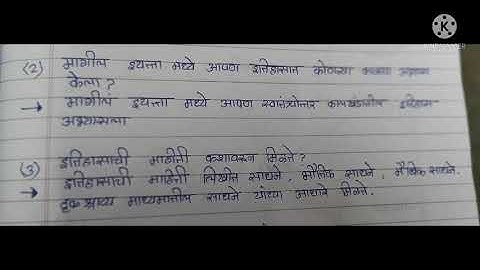 (2) मागील इयत्ता मध्ये आपण इतिहासात कोणत्या
केला?
→ मागील इयत्ता मध्ये आपण स्वातंत्र्योत्तर कालखंडातील इतिहास
अभ्यासला
(3) इतिहासाची माहीती कशावरून मिळते?
→ इतिहासाची माहिती लिखीत साधने, भौतिक साधने, मौखिक साधने.
दृक श्राव्य माध्यमातील साधने यांच्या आधारे मिळते.